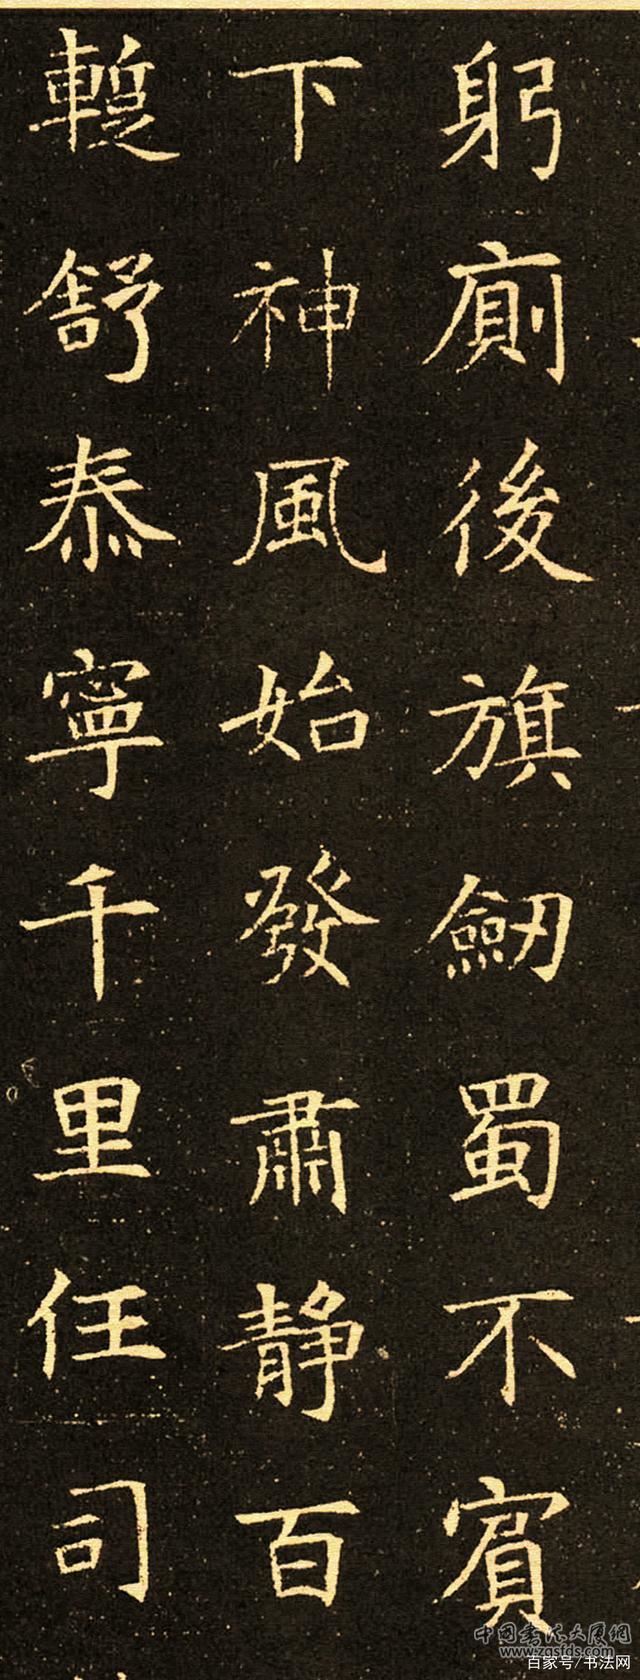 躬廁後旗劒蜀不賓
下神風始發肅静百
舒泰寧千里任司
中國書法大厦網
www.zgsfds.com
百家号/书法网